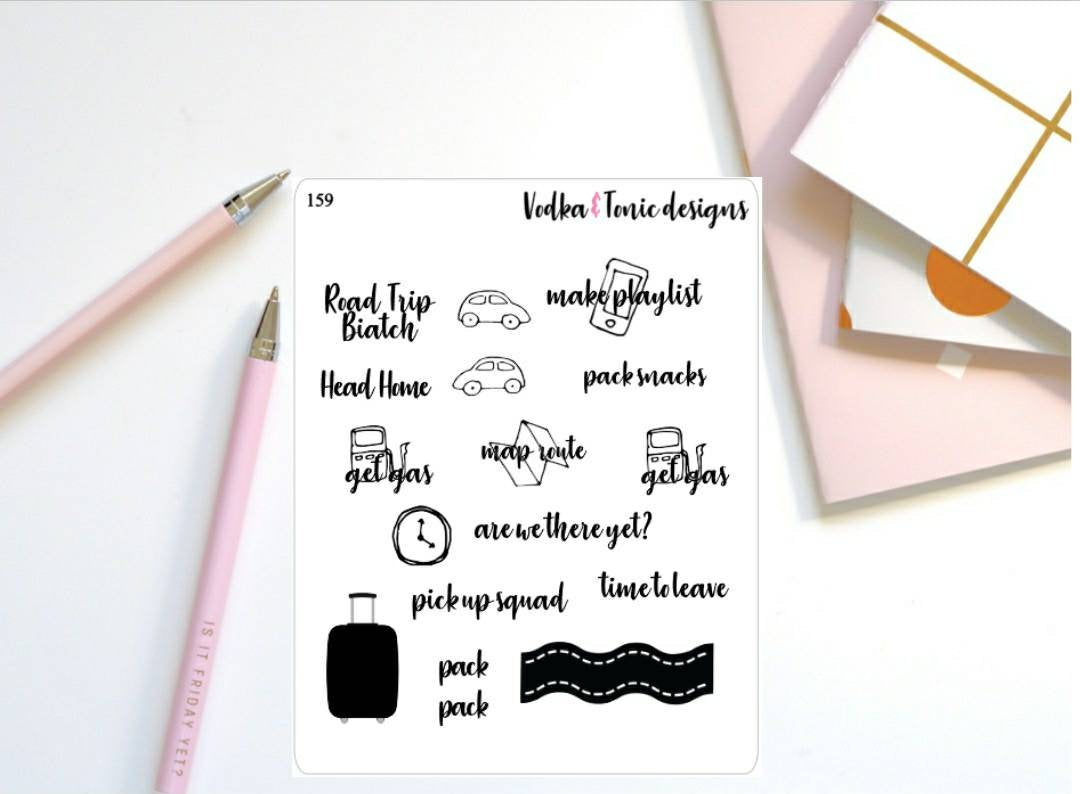 159
Vodka & Tonic designs
Road Trip
Biatch
make playlist
Head Home
pack snacks
get gas
map route
get gas
are we there yet?
pick up squad
time to leave
pack
pack
IS IT FRIDAY YET?